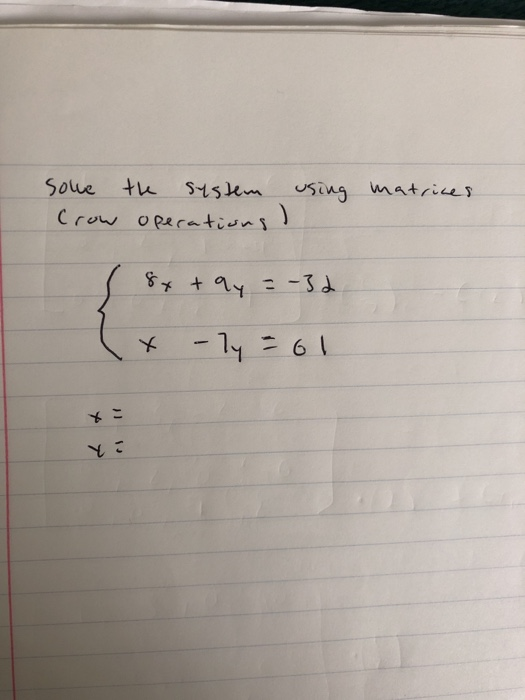 Solve the system using matrices
(row operations)
8x + 9y = -32
x - 7y = 61
x =
y =